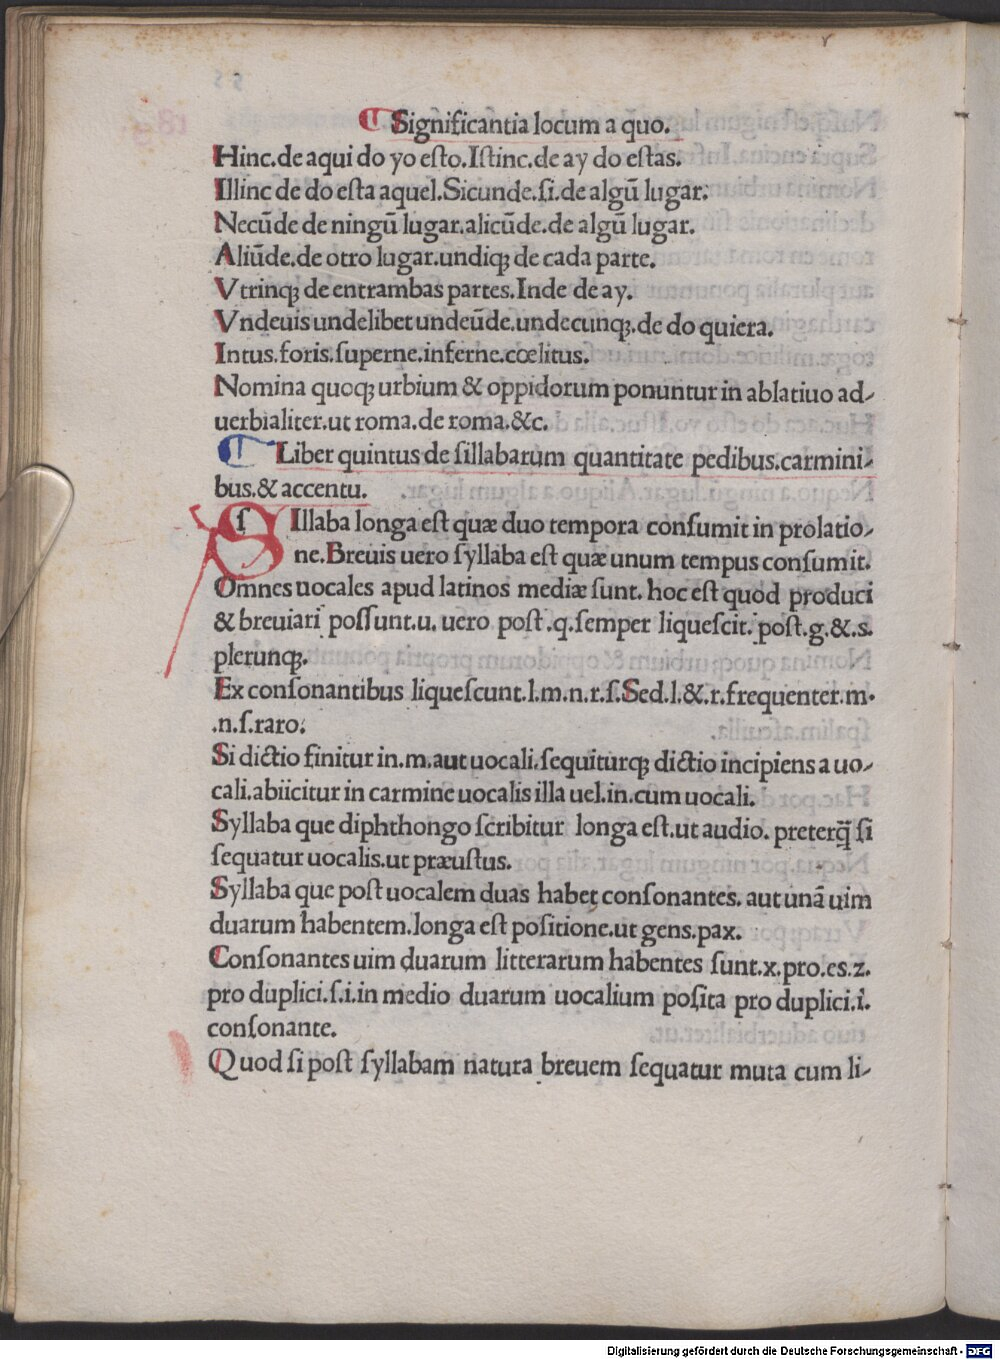 ¶ Significantia locum a quo.
Hinc.de aqui do yo eſto.Iſtinc.de ay do eſtas.
Illinc de do eſta aquel.Sicunde.ſi.de algũ lugar.
Necũde de ningũ lugar.alicũde.de algũ lugar.
Aliũde.de otro lugar.undiqꝫ de cada parte.
Vtrinqꝫ de entrambas partes.Inde de ay.
Vndeuis undelibet undeũde.undecunqꝫ.de do quiera.
Intus.foris.ſuperne.inferne.cœlitus.
Nomina quoqꝫ urbium & oppidorum ponuntur in ablatiuo ad-
uerbialiter.ut roma.de roma.&c.
¶ Liber quintus de ſillabarum quantitate pedibus.carmini-
bus.& accentu.
SIllaba longa eſt quæ duo tempora conſumit in prolatio-
ne.Breuis uero ſyllaba eſt quæ unum tempus conſumit.
Omnes uocales apud latinos mediæ ſunt. hoc eſt quod produci
& breuiari poſſunt.u. uero poſt .q.ſemper liqueſcit. poſt.g.&.s.
plerunqꝫ.
Ex conſonantibus liqueſcunt.l.m.n.r.ſ.Sed.l.&.r.frequenter.m.
.n.ſ.raro.
Si dictio finitur in.m.aut uocali.ſequiturqꝫ dictio incipiens a uo-
cali.abiicitur in carmine uocalis illa uel.in.cum uocali.
Syllaba que diphthongo ſcribitur longa eſt.ut audio. preterq̃ ſi
ſequatur uocalis.ut præuſtus.
Syllaba que poſt uocalem duas habet conſonantes. aut unã uim
duarum habentem.longa eſt poſitione.ut gens.pax.
Conſonantes uim duarum litterarum habentes ſunt.x.pro.cs.z.
pro duplici.ſ.i.in medio duarum uocalium poſita pro duplici.i.
conſonante.
Quod ſi poſt ſyllabam natura breuem ſequatur muta cum li-
Digitalisierung gefördert durch die Deutsche Forschungsgemeinschaft - DFG